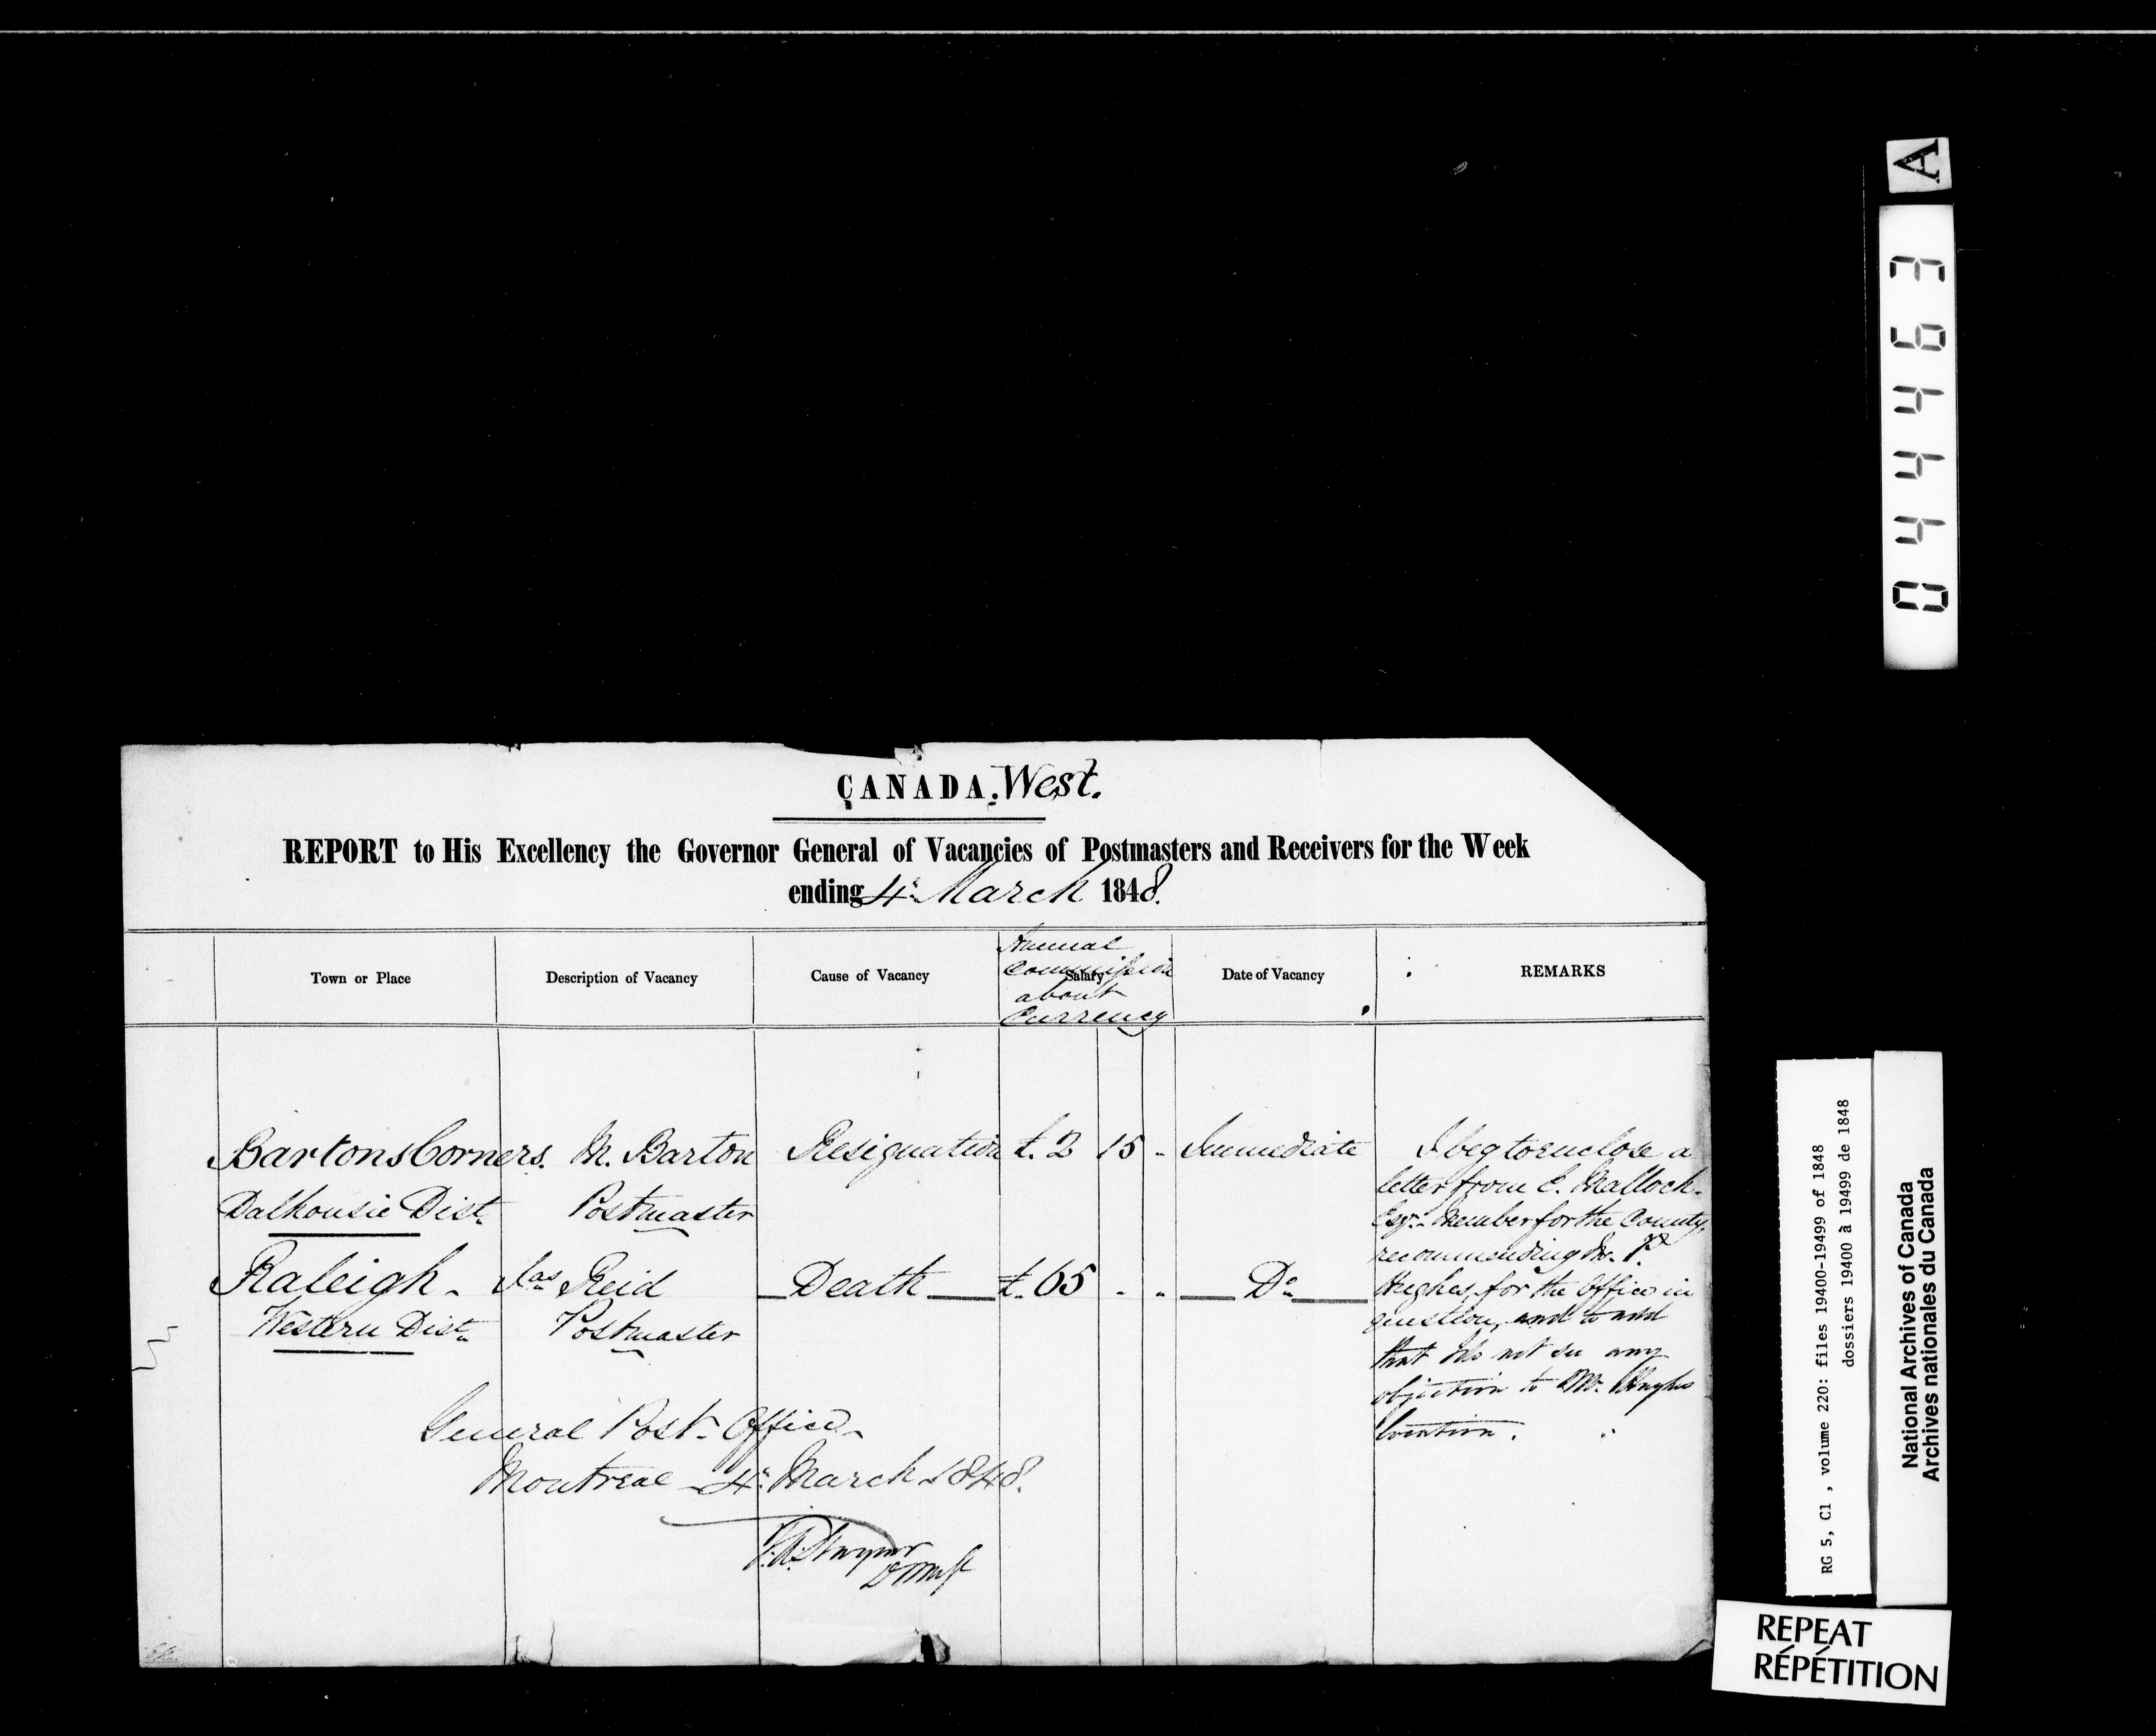 A
044463
CANADA. West.
REPORT to His Excellency the Governor General of Vacancies of Postmasters and Receivers for the Week
ending 4th March 1848.
Town or Place
Description of Vacancy
Cause of Vacancy
Annual
Commission
Salary
about
Currency
Date of Vacancy
REMARKS
Bartons Corners.
Dalhousie Dist.
M. Barton
Postmaster
Resignation
£. 2 15 -
Immediate
I beg to enclose a
letter from E. Malloch
Esqr. Member for the County,
recommending Mr.
Hughes, for the Office in
question, and to add
that I do not see any
objection to Mr. Hughes
location.
Raleigh -
Western Dist.
Jas Reid
Postmaster
Death
£. 65 - -
Do
General Post Office
Montreal 4th March 1848.
RG 5, C1 , volume 220: files 19400-19499 of 1848
dossiers 19400 à 19499 de 1848
National Archives of Canada
Archives nationales du Canada
REPEAT
RÉPÉTITION